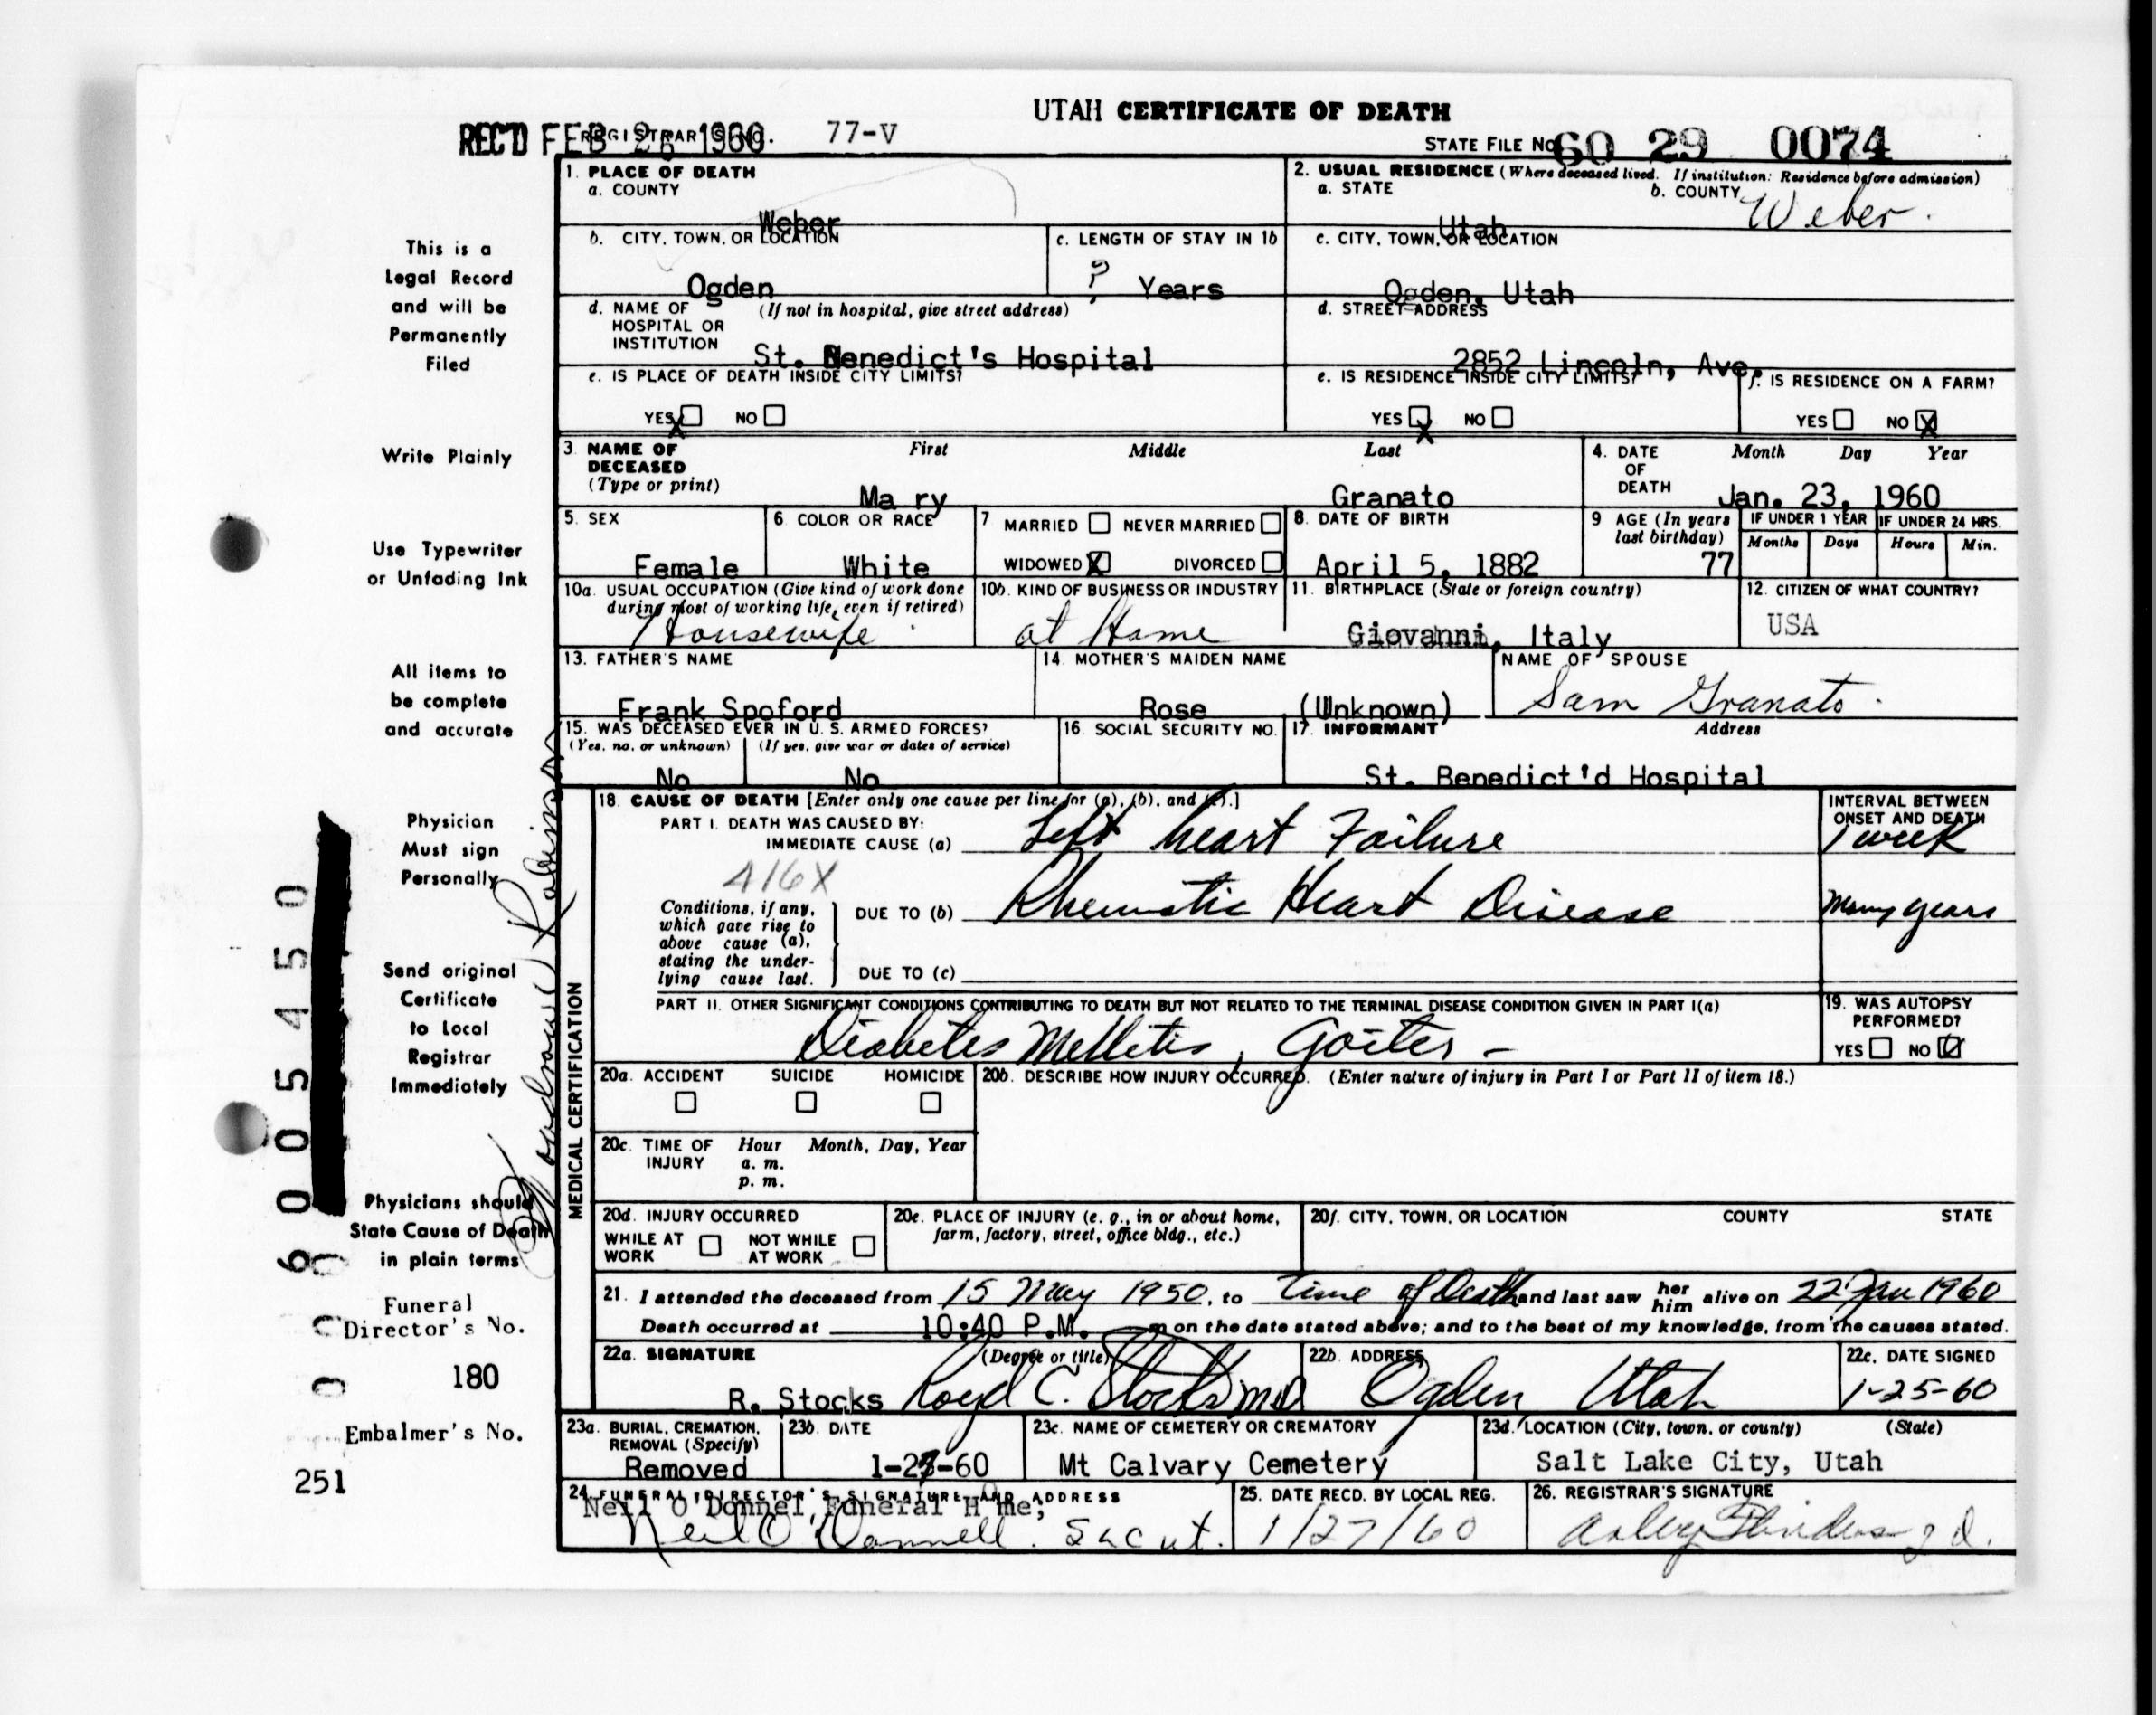 UTAH CERTIFICATE OF DEATH
REC'D FEB 26 1960 REGISTRAR'S NO. 77-V
STATE FILE No. 60 29 0074
1. PLACE OF DEATH
a. COUNTY
Weber
2. USUAL RESIDENCE (Where deceased lived. If institution: Residence before admission)
a. STATE
Utah
b. COUNTY
Weber.
b. CITY, TOWN, OR LOCATION
Ogden
c. LENGTH OF STAY IN 1b
? Years
c. CITY, TOWN, OR LOCATION
Ogden, Utah
d. NAME OF HOSPITAL OR INSTITUTION (If not in hospital, give street address)
St. Benedict's Hospital
d. STREET ADDRESS
2852 Lincoln, Ave.
e. IS PLACE OF DEATH INSIDE CITY LIMITS?
YES X NO
e. IS RESIDENCE INSIDE CITY LIMITS?
YES X NO
f. IS RESIDENCE ON A FARM?
YES NO X
3. NAME OF DECEASED (Type or print)
First Middle Last
Ma ry Granato
4. DATE OF DEATH Month Day Year
Jan. 23, 1960
5. SEX
Female
6. COLOR OR RACE
White
7 MARRIED NEVER MARRIED
WIDOWED X DIVORCED
8. DATE OF BIRTH
April 5, 1882
9 AGE (In years last birthday)
77
IF UNDER 1 YEAR IF UNDER 24 HRS.
Months Days Hours Min.
10a. USUAL OCCUPATION (Give kind of work done during most of working life, even if retired)
Housewife
10b. KIND OF BUSINESS OR INDUSTRY
at Home
11. BIRTHPLACE (State or foreign country)
Giovanni, Italy
12. CITIZEN OF WHAT COUNTRY?
USA
13. FATHER'S NAME
Frank Spoford
14. MOTHER'S MAIDEN NAME
Rose (Unknown)
NAME OF SPOUSE
Sam Granato.
15. WAS DECEASED EVER IN U. S. ARMED FORCES?
(Yes, no, or unknown) (If yes, give war or dates of service)
No No
16. SOCIAL SECURITY NO.
17. INFORMANT Address
St. Benedict'd Hospital
MEDICAL CERTIFICATION
18. CAUSE OF DEATH [Enter only one cause per line for (a), (b), and (c).]
PART I. DEATH WAS CAUSED BY:
IMMEDIATE CAUSE (a) Left heart Failure
INTERVAL BETWEEN ONSET AND DEATH
1 week
416X
Conditions, if any, which gave rise to above cause (a), stating the underlying cause last.
DUE TO (b) Rheumatic Heart Disease
Many years
DUE TO (c)
PART II. OTHER SIGNIFICANT CONDITIONS CONTRIBUTING TO DEATH BUT NOT RELATED TO THE TERMINAL DISEASE CONDITION GIVEN IN PART I(a)
Diabetes Mellitis, Goiter -
19. WAS AUTOPSY PERFORMED?
YES NO
20a. ACCIDENT SUICIDE HOMICIDE
20b. DESCRIBE HOW INJURY OCCURRED. (Enter nature of injury in Part I or Part II of item 18.)
20c. TIME OF INJURY Hour Month, Day, Year
a. m.
p. m.
20d. INJURY OCCURRED
WHILE AT WORK NOT WHILE AT WORK
20e. PLACE OF INJURY (e. g., in or about home, farm, factory, street, office bldg., etc.)
20f. CITY, TOWN, OR LOCATION COUNTY STATE
21. I attended the deceased from 15 May 1950, to Time of Death and last saw her him alive on 22 Jan 1960
Death occurred at 10:40 P.M. m on the date stated above; and to the best of my knowledge, from the causes stated.
22a. SIGNATURE (Degree or title)
R. Stocks Loyd C. Stocks MD
22b. ADDRESS
Ogden Utah
22c. DATE SIGNED
1-25-60
23a. BURIAL, CREMATION, REMOVAL (Specify)
Removed
23b. DATE
1-27-60
23c. NAME OF CEMETERY OR CREMATORY
Mt Calvary Cemetery
23d. LOCATION (City, town, or county) (State)
Salt Lake City, Utah
24 FUNERAL DIRECTOR'S SIGNATURE AND ADDRESS
Neil O'Donnel, Funeral Home,
Neil O'Donnell. SLC Ut.
25. DATE RECD. BY LOCAL REG.
1/27/60
26. REGISTRAR'S SIGNATURE
This is a
Legal Record
and will be
Permanently
Filed
Write Plainly
Use Typewriter
or Unfading Ink
All items to
be complete
and accurate
Physician
Must sign
Personally
Send original
Certificate
to Local
Registrar
Immediately
Physicians should
State Cause of Death
in plain terms
Funeral
Director's No.
180
Embalmer's No.
251
6005450